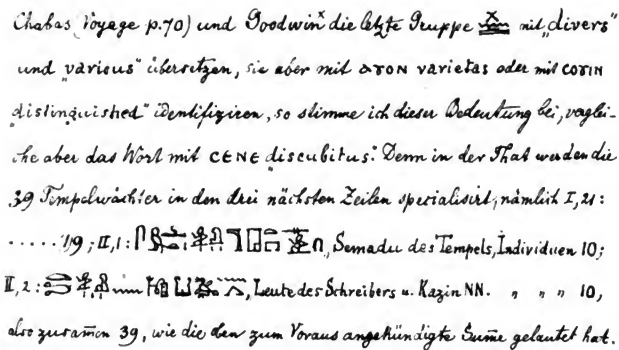 Chabas (Voyage p. 70) und Goodwin x die letzte Gruppe mit „divers"
und „various" übersetzen, sie aber mit ⲁⲩⲟⲛ varietas oder mit ⲥⲟⲩⲓⲛ
„distinguished" identifiziren, so stimme ich dieser Bedeutung bei, verglei-
che aber das Wort mit ⲥⲉⲛⲉ „discubitus". Denn in der That werden die
39 Tempelwächter in den drei nächsten Zeilen specialisirt, nämlich I, 21:
..... 19; II, 1: Semadu des Tempels, Individuen 10;
II, 2: Leute des Schreibers u. Kazin NN. " " " 10,
also zusam̄en 39, wie die oben zum Voraus angekündigte Sum̄e gelautet hat.